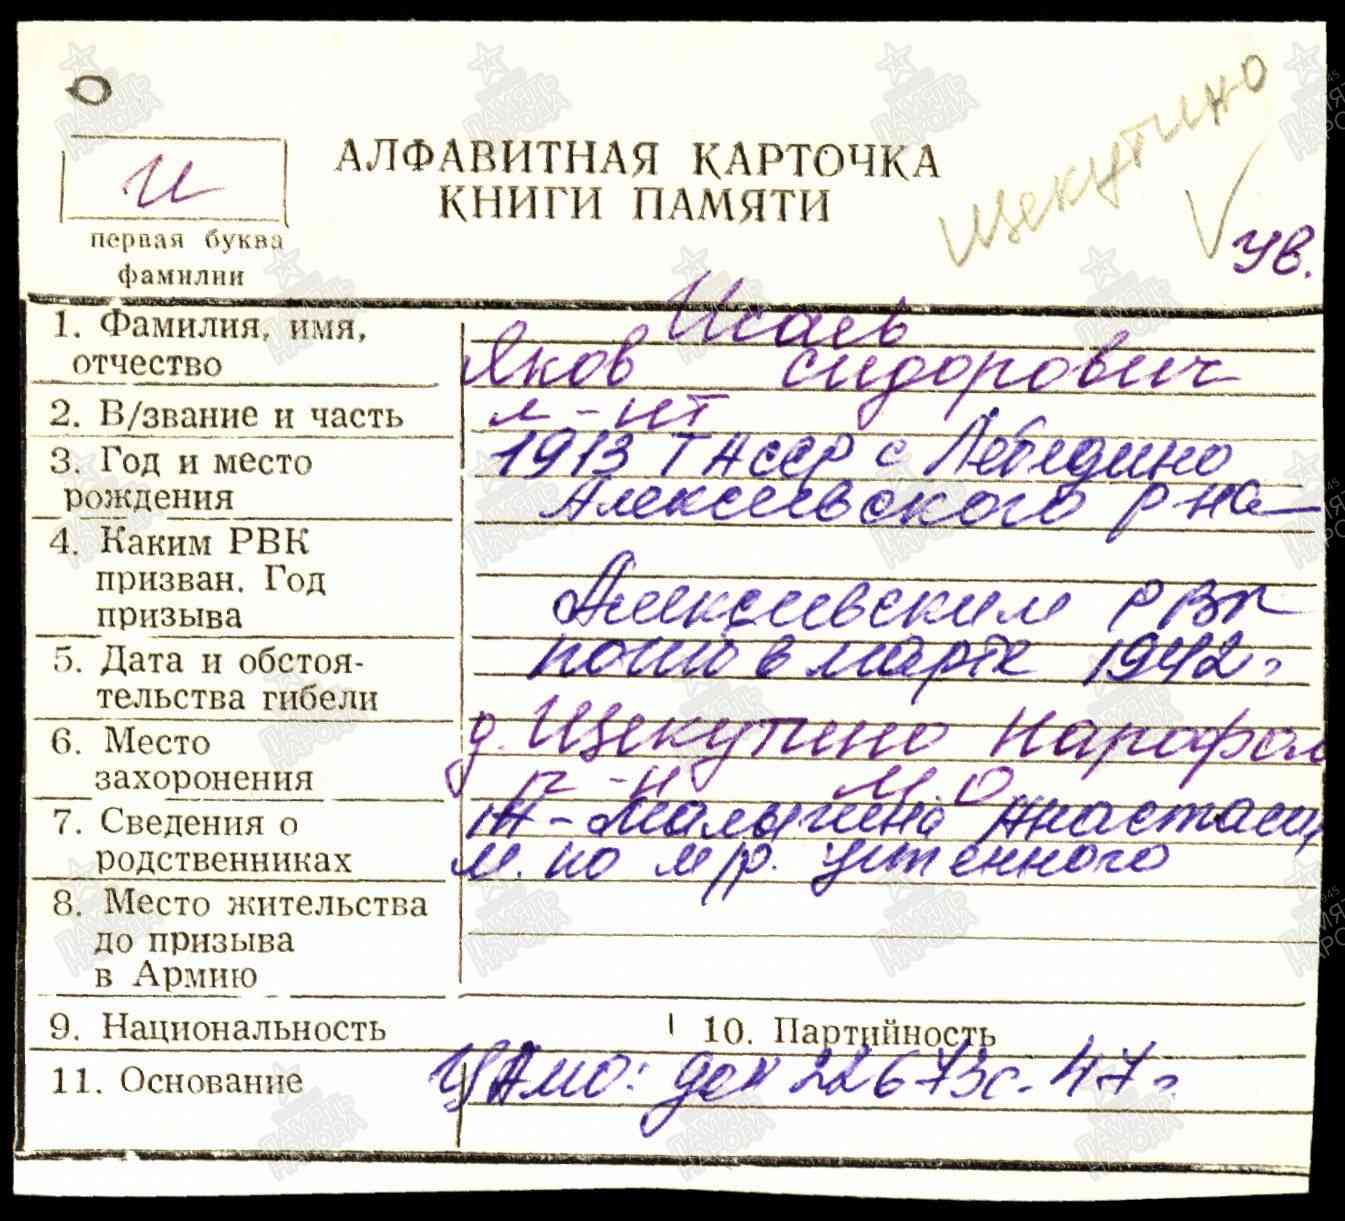 О
Щекутино
И
АЛФАВИТНАЯ КАРТОЧКА
КНИГИ ПАМЯТИ
ув.
первая буква
фамилии
1. Фамилия, имя,
отчество
Исаев
Яков Сидорович
2. В/звание и часть
л-нт
3. Год и место
рождения
1913 ТАССР с Лебедино
Алексеевского р-на
4. Каким РВК
призван. Год
призыва
Алексеевским РВК
5. Дата и обстоя-
тельства гибели
погиб в марте 1942 г
6. Место
захоронения
д. Щекутино Нарофом
р-н М.О
7. Сведения о
родственниках
ж - Малыгина Анастасия
М. по
8. Место жительства
до призыва
в Армию
9. Национальность
10. Партийность
11. Основание
ЦАМО: док 22673с. 47г
ПАМЯТЬ НАРОДА